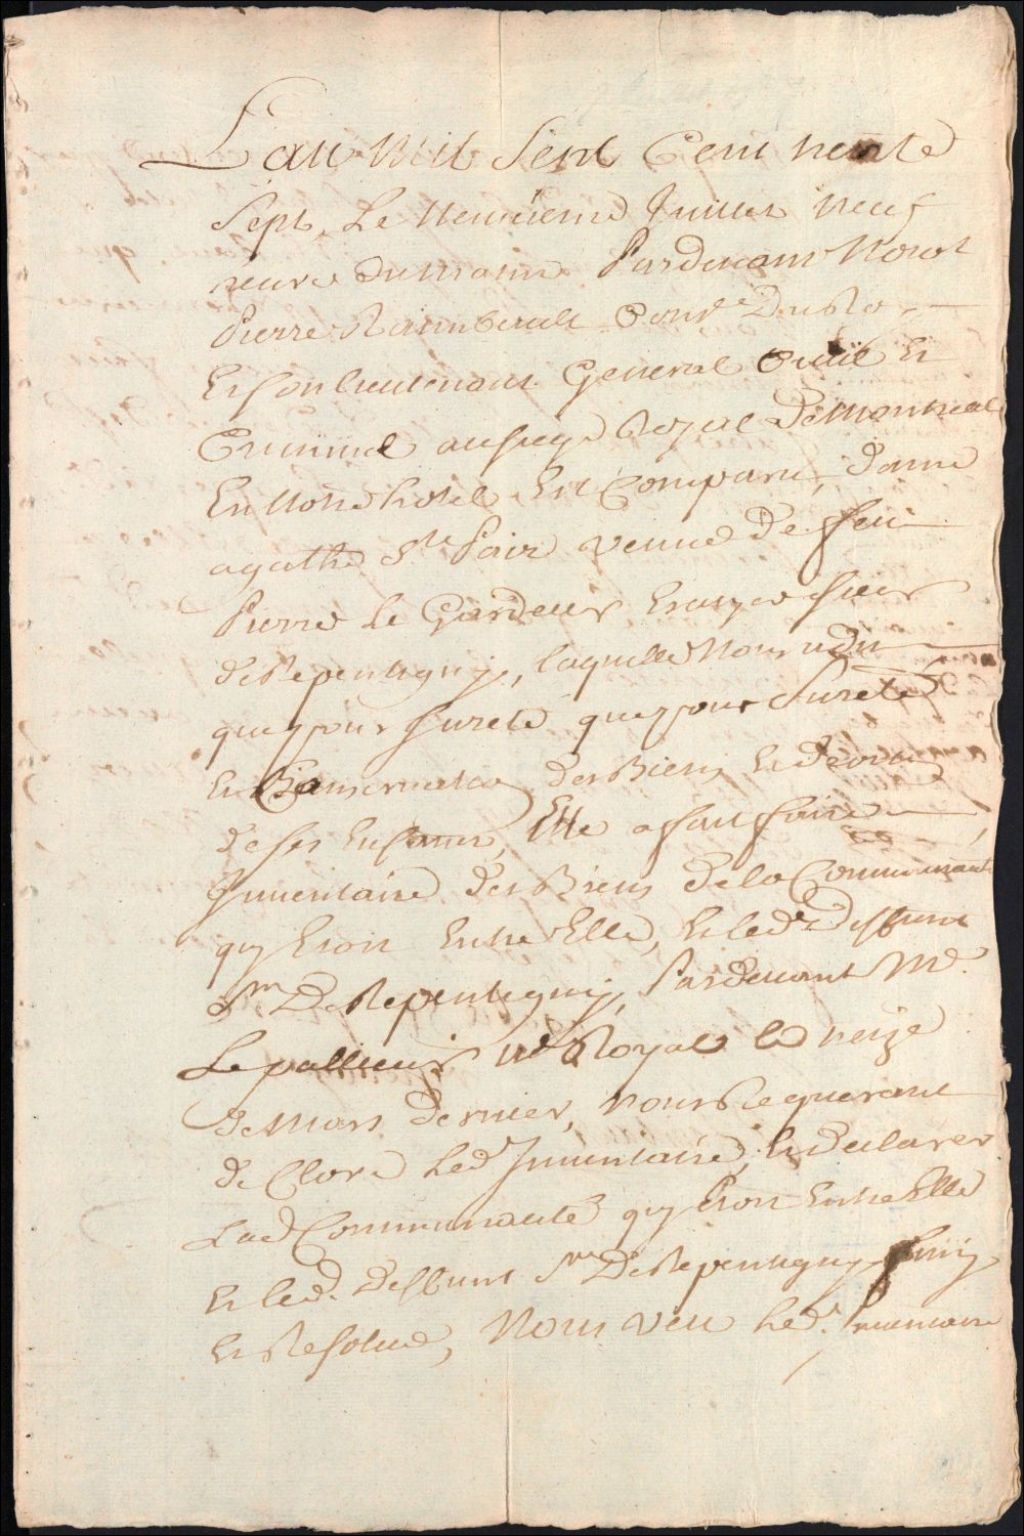 Lan Mil Sept Cent trente
Sept, Le Neuvieme Juillet neuf
heure du matin Pardevant Nous
Pierre Raimbault Conser Du Roy
Et son lieutenant General Civil Et
Criminel au siege Royal De Montreal
En Notre hotel Est Comparu, dame
agathe St Pair veuve De feu
Pierre le Gardeur Ecuyer sieur
de Repentigny, laquelle Nous a dit
que pour sureté que pour Sureté
Et Conservation des Biens Et droits
de ses Enfans, Elle a fait faire
Inventaire des Biens de la Communauté
qui Etoit Entre Elle, Et led. deffunt
Sr. De Repentigny, Pardevant Me.
Lepallieur Nore Royal le treize
de Mars dernier, Nous Requerant
de Clore led. Inventaire, Et declarer
Lad. Communauté qui Etoit Entre Elle
Et led. deffunt Sr De Repentigny finy
Et Resolue, Nous veu led. Inventaire